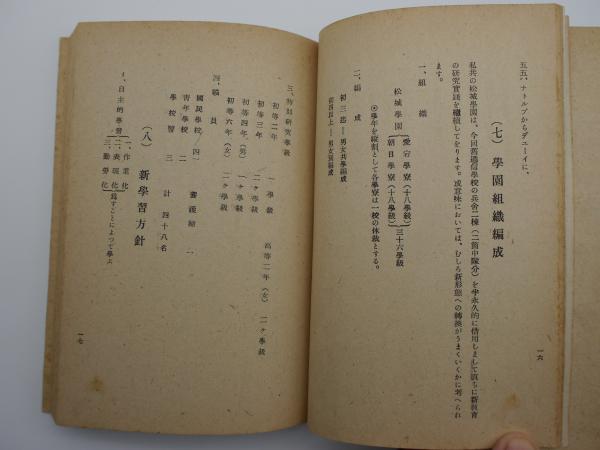 五五、ナトルプからデユーイに、
(七) 學園組織編成
私共の松城學園は、今回舊通信學校の兵舍二棟(二箇中隊分)を半永久的に借用しまして直ちに新教育
の研究實踐を繼續してをります。或意味においては、むしろ新形態への轉換がうまくいくかに考へられ
ます。
一、組織
松城學園
愛宕學寮(十八學級)
朝日學寮(十八學級)
三十六學級
◎學年を縱割として各學寮は一校の休裁とする。
二、編成
初三迄―男女共學編成
初四以上―男女別編成
一六
三、特別研究學級
初等二年 一學級
初等三年 二ヶ學級
初等四年、(男) 一ヶ學級
初等六年(女) 二ヶ學級
高等二年(女) 二ヶ學級
四、職員
國民學校 四一
青年學校 二
學校醫 三
養護婦 二
計四十八名
(八) 新學習方針
1、自主的學習
一、作業化
二、表現化
三、勤勞化
爲すことによつて學ぶ
一七